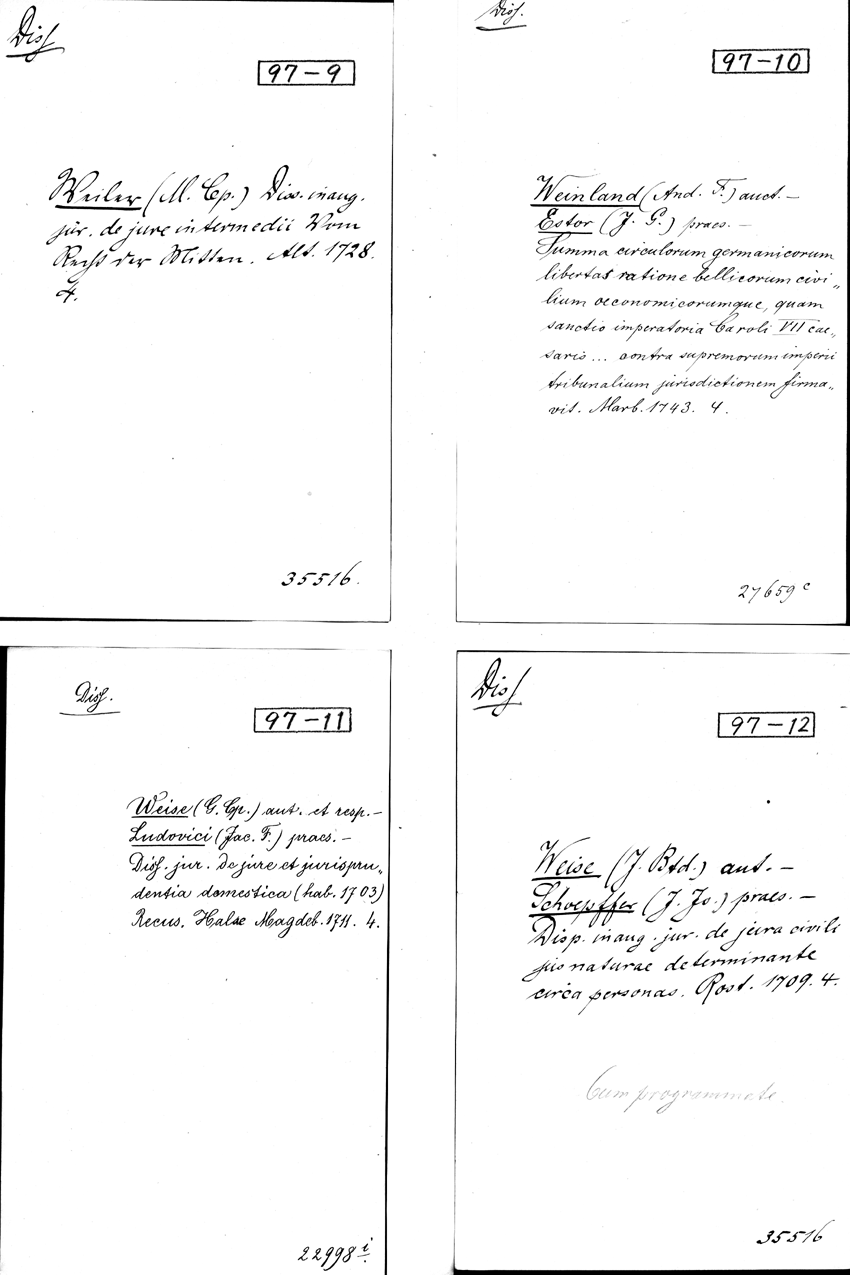 Diss
97-9
Weiler (M. Cp.) Diss. inaug.
jur. de jure intermedii Vom
Recht der Mitten. Alt. 1728.
4.
35516.
Diss.
97-10
Weinland (And. F.) auct. —
Estor (J. G.) praes. —
Summa circulorum germanicorum
libertas ratione bellicorum civi„
lium oeconomicorumque, quam
sanctio imperatoria Caroli VII cae„
saris ... contra supremorum imperii
tribunalium jurisdictionem firma„
vit. Marb. 1743. 4.
27659 c
Diss.
97-11
Weise (G. Cp.) aut. et resp. —
Ludovici (Jac. F.) praes. —
Diss. jur. de jure et jurispru„
dentia domestica (hab. 1703)
Recus. Halae Magdeb. 1711. 4.
22998 i.
Diss
97-12
Weise (J. Btd.) aut. —
Schoepffer (J. Js.) praes. —
Disp. inaug. jur. de jura civili
jus naturae determinante
circa personas. Rost. 1709. 4.
Cum programmate.
35516